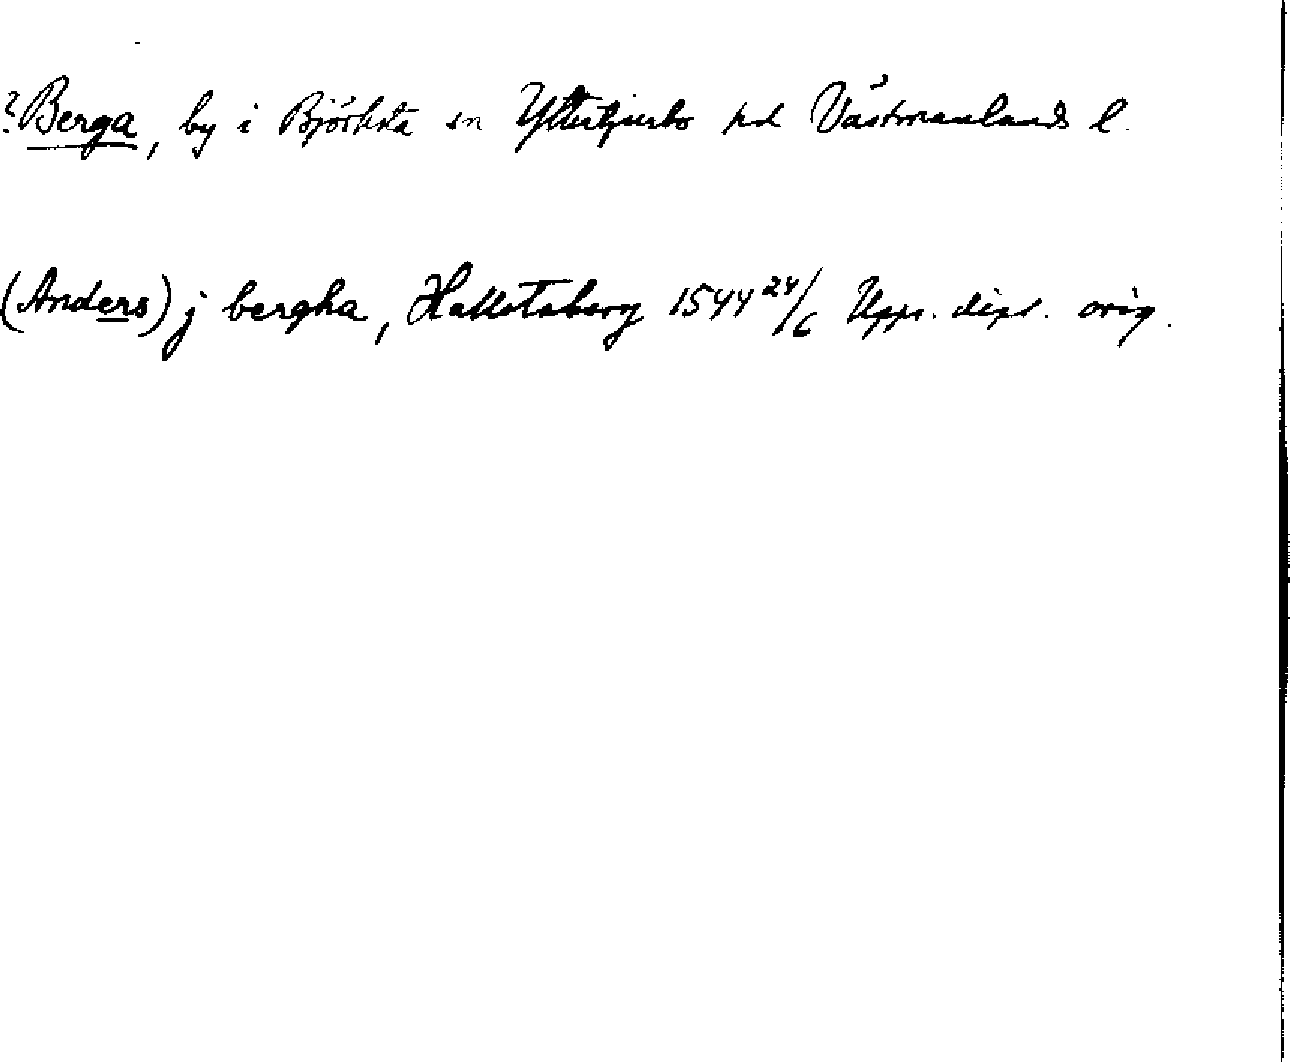 ? Berga, by i Björksta sn Yttertjurbo hd Västmanlands l.
(Anders) j bergha, Hallstaberg 1544 24/6 Upps. dipl. orig.